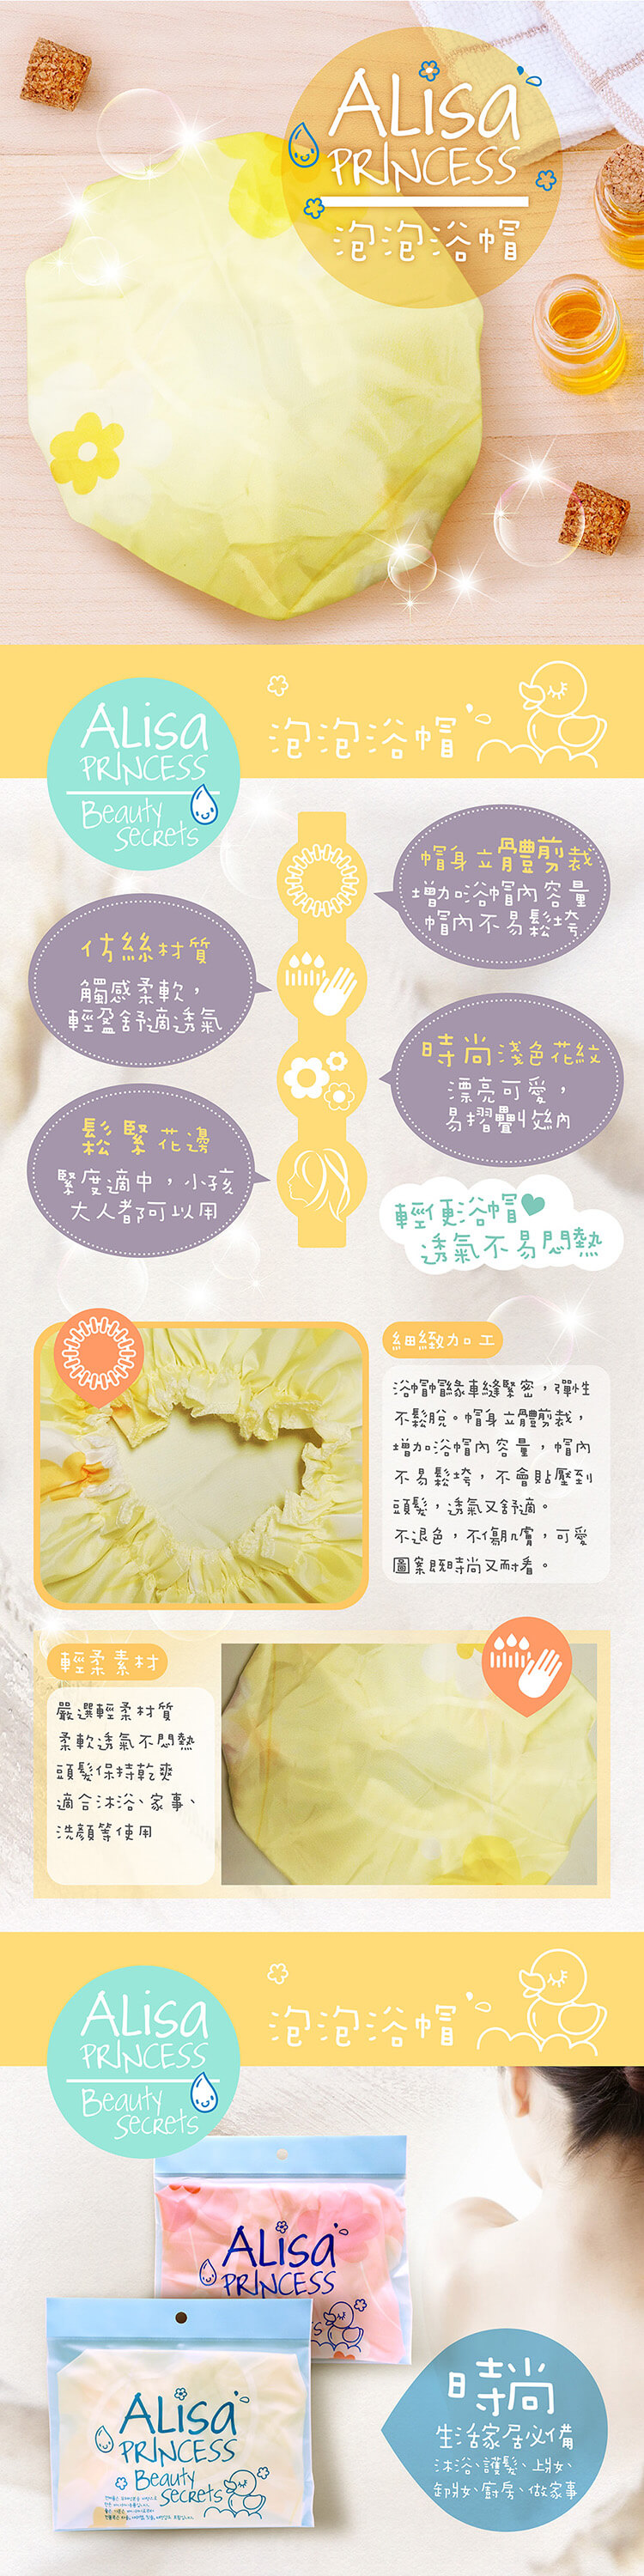 ALisa
PRINCESS
泡泡浴帽
ALisa
PRINCESS
Beauty
Secrets
泡泡浴帽
帽身立體剪裁
增加浴帽內容量
帽內不易鬆垮
仿絲材質
觸感柔軟，
輕盈舒適透氣
時尚淺色花紋
漂亮可愛，
易摺疊收納
鬆緊花邊
緊度適中，小孩
大人都可以用
輕便浴帽
透氣不易悶熱
細緻加工
浴帽帽緣車縫緊密，彈性
不鬆脫。帽身立體剪裁，
增加浴帽內容量，帽內
不易鬆垮，不會貼壓到
頭髮，透氣又舒適。
不退色，不傷肌膚，可愛
圖案既時尚又耐看。
輕柔素材
嚴選輕柔材質
柔軟透氣不悶熱
頭髮保持乾爽
適合沐浴、家事、
洗顏等使用
ALisa
PRINCESS
Beauty
Secrets
泡泡浴帽
ALisa
PRINCESS
ALisa
PRINCESS
Beauty
Secrets
時尚
生活家居必備
沐浴、護髮、上妝、
卸妝、廚房、做家事